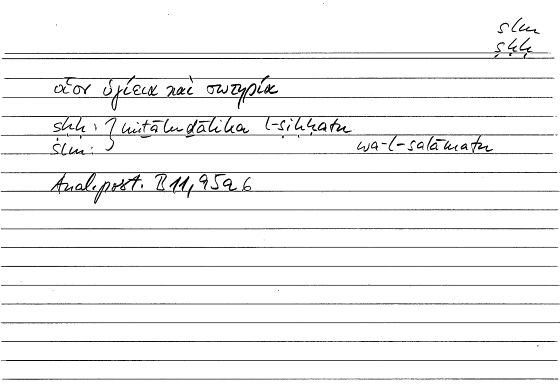 slm
ṣḥḥ
οἷον ὑγίεια καὶ σωτηρία
ṣḥḥ : } miṯālu ḏālika l-ṣiḥḥatu
slm : wa-l-salāmatu
Anal. post. B 11, 95a6